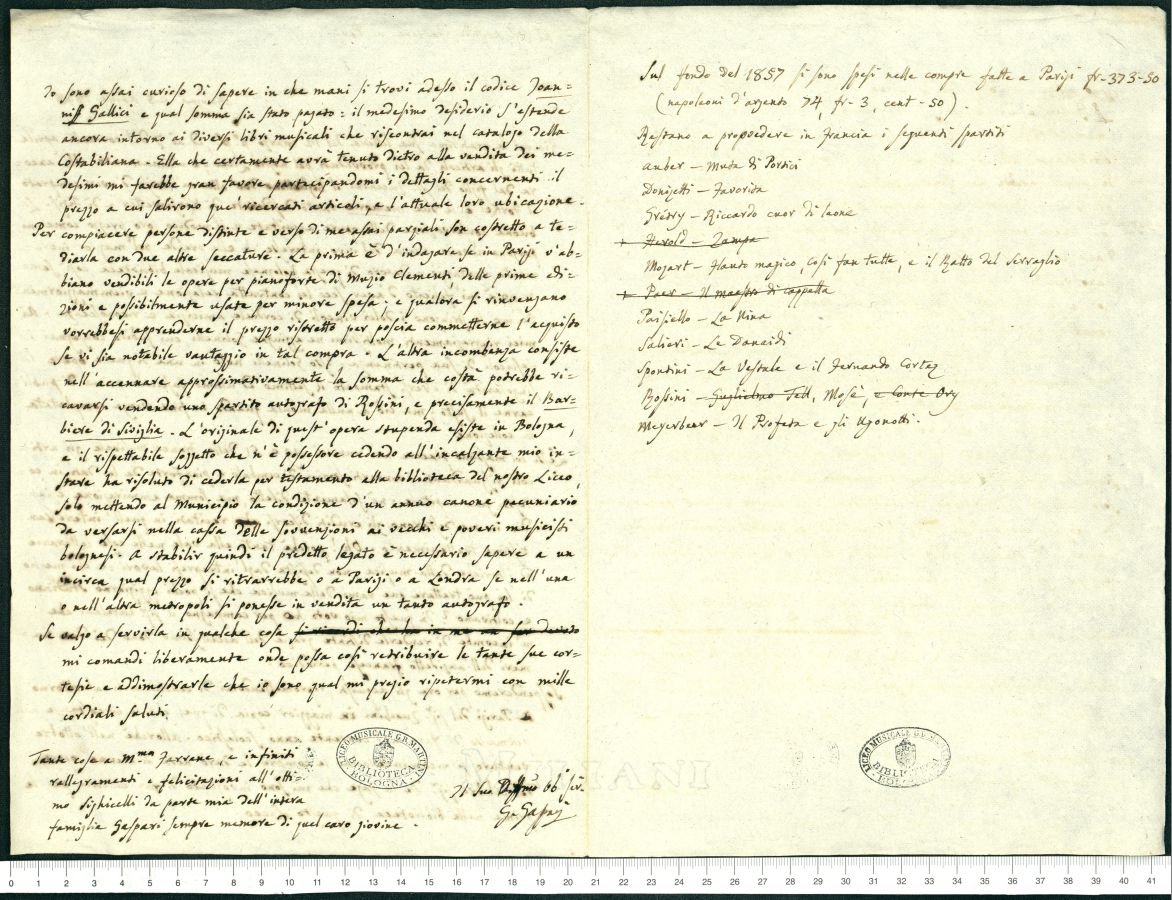 Io sono assai curioso di sapere in che mani si trovi adesso il codice Joan-
nis Gallici e qual somma sia stato pagato: il medesimo desiderio s'estende
ancora intorno ai diversi libri musicali che riscontrai nel catalogo della
Costabiliana. Ella che certamente avrà tenuto dietro alla vendita dei me-
desimi mi farebbe gran favore partecipandomi i dettagli concernenti il
prezzo a cui salirono que' ricercati articoli, e l'attuale loro ubicazione.
Per compiacere persone distinte e verso di me assai parziali son costretto a te-
diarla con due altre seccature. La prima è d'indagare se in Parigi v'ab-
biano vendibili le opere per pianoforte di Muzio Clementi, delle prime edi-
zioni e possibilmente usate per minore spesa; e qualora si rinvengano
vorrebbesi apprenderne il prezzo ristretto per poscia commetterne l'acquisto
se vi sia notabile vantaggio in tal compra. L'altra incombenza consiste
nell'accennare approssimativamente la somma che costà potrebbe ri-
cavarsi vendendo uno spartito autografo di Rossini, e precisamente il Bar-
biere di Siviglia. L'originale di quest'opera stupenda esiste in Bologna,
e il rispettabile soggetto che n'è possessore cedendo all'incalzante mio in-
stare ha risoluto di cederla per testamento alla biblioteca del nostro Liceo,
solo mettendo al Municipio la condizione d'un annuo canone pecuniario
da versarsi nella cassa delle sovvenzioni ai vecchi e poveri musicisti
bolognesi. A stabilir quindi il predetto legato è necessario sapere a un
incirca qual prezzo si ritrarrebbe o a Parigi o a Londra se nell'una
o nell'altra metropoli si ponesse in vendita un tanto autografo.
Se valgo a servirla in qualche cosa si ricordi che ha in me un suo devoto
mi comandi liberamente onde possa così retribuire le tante sue cor-
tesie e addimostrarle che io sono qual mi pregio ripetermi con mille
cordiali saluti
Tante cose a M.ma Farrenc, e infiniti
rallegramenti e felicitazioni all'otti-
mo Sighicelli da parte mia dell'intera
famiglia Gaspari sempre memore di quel caro giovine.
Il Suo Aff.mo Obb. Ser.
G. Gaspari
LICEO MUSICALE G.B. MARTINI
BIBLIOTECA
BOLOGNA
Sul fondo del 1857 si sono spesi nelle compre fatte a Parigi fr-373-50
(napoleoni d'argento 74, fr-3, cent-50).
Restano a provvedere in Francia i seguenti spartiti
Auber – Muta di Portici
Donizetti – Favorita
Grétry – Riccardo cuor di leone
+ Herold – Zampa
Mozart – Flauto magico, Così fan tutte, e il Ratto del Serraglio
+ Paer – Il maestro di cappella
Paisiello – La Nina
Salieri – Le Danaidi
Spontini – La Vestale e il Fernando Cortez
Rossini – Guglielmo Tell, Mosè, e Conte Ory
Meyerbeer – Il Profeta e gli Ugonotti.
LICEO MUSICALE G.B. MARTINI
BIBLIOTECA
BOLOGNA
0 1 2 3 4 5 6 7 8 9 10 11 12 13 14 15 16 17 18 19 20 21 22 23 24 25 26 27 28 29 30 31 32 33 34 35 36 37 38 39 40 41